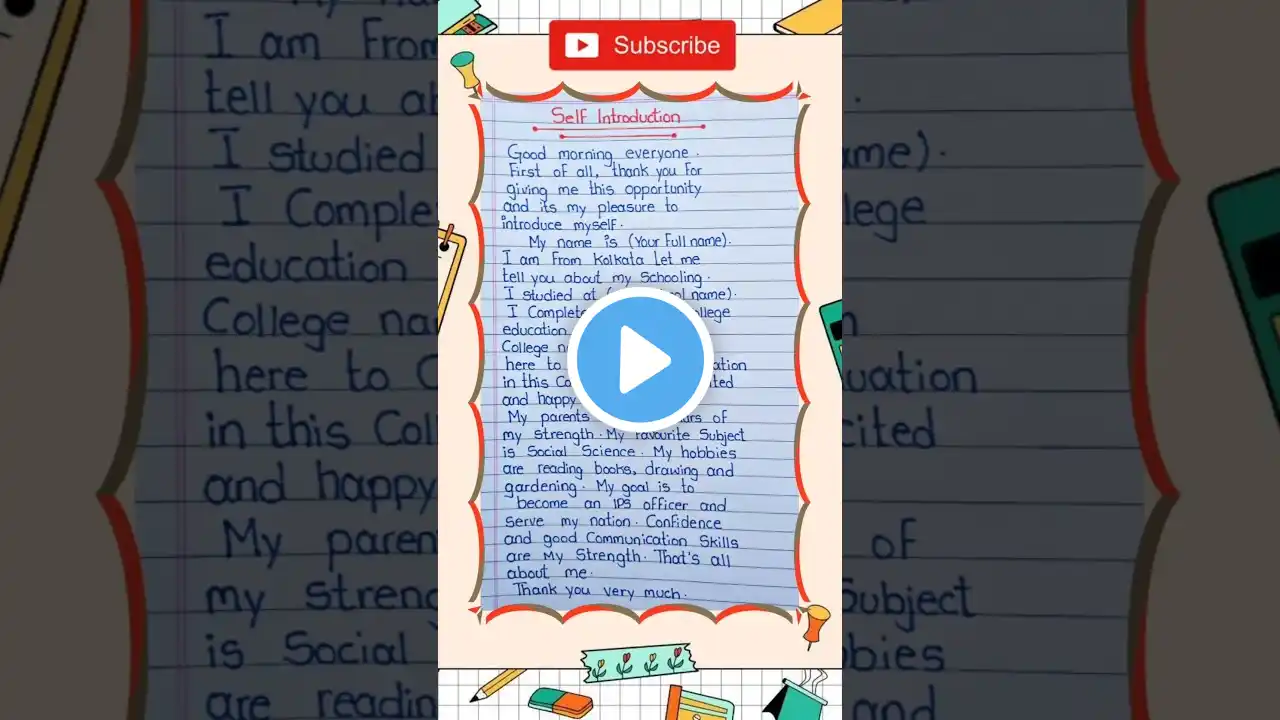 Subscribe
Self Introduction
Good morning everyone.
First of all, thank you for
giving me this opportunity
and its my pleasure to
introduce myself.
My name is (Your Full name).
I am From Kolkata Let me
tell you about my Schooling.
I studied at ( name).
I
education
College
here to
in this
and happy
My parents of
my strength. My Favourite Subject
is Social Science. My hobbies
are reading books, drawing and
gardening. My goal is to
become an IPS officer and
serve my nation. Confidence
and good Communication Skills
are My Strength. That's all
about me.
Thank you very much.